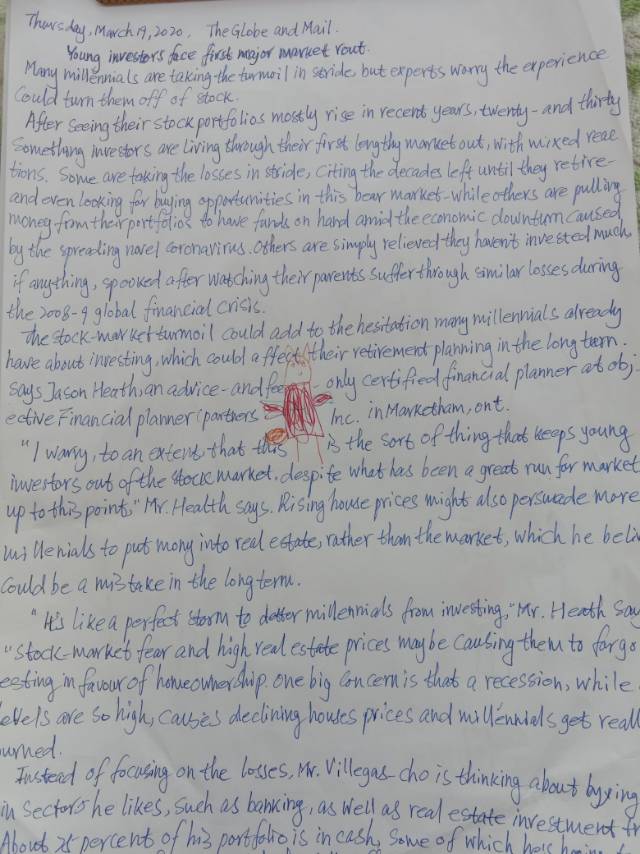 Thursday, March 19, 2020. The Globe and Mail.
Young investors face first major market rout.
Many millennials are taking the turmoil in stride, but experts worry the experience
Could turn them off of stock.
After seeing their stock portfolios mostly rise in recent years, twenty- and thirty
Something investors are living through their first lengthy market out, with mixed reac
tions. Some are taking the losses in stride, Citing the decades left until they retire-
and even looking for buying opportunities in this bear market-while others are pulling
money from their portfolios to have funds on hand amid the economic downturn caused,
by the spreading novel coronavirus. Others are simply relieved they haven't invested much,
if anything, spooked after watching their parents suffer through similar losses during
the 2008-9 global financial crisis.
The stock-market turmoil could add to the hesitation many millennials already
have about investing, which could affect their retirement planning in the long term.
says Jason Heath, an advice-and fee - only certified financial planner at obj-
ective Financial planner (partners Inc. in Marketham, ont.
"I worry, to an extent, that this is the sort of thing that keeps young
investors out of the stock market, despite what has been a great run for market
up to this point," Mr. Health says. Rising house prices might also persuade more
millenials to put mony into real estate, rather than the market, which he beli
Could be a mistake in the long term.
"It's like a perfect storm to detter millennials from investing," Mr. Heath say
"Stock-market fear and high real estate prices may be causing them to fargo
esting in favour of homeownership. one big concern is that a recession, while
levels are so high, causes declining houses prices and millennials get reall
urned.
Instead of focusing on the losses, Mr. Villegas-cho is thinking about byying
in sectors he likes, such as banking, as well as real estate investment tr
About 25 percent of his portfolio is in cash, some of which he's